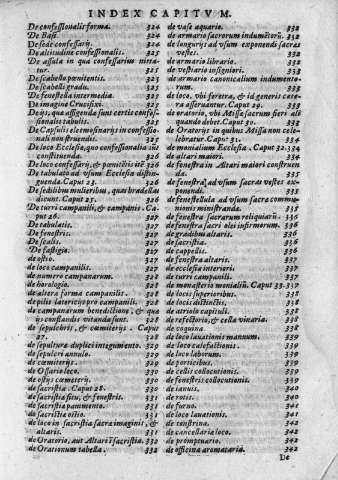 INDEX CAPITVM.
De confessionalis forma. 324
De Basi. 324
De sede confessarij. 324
De altitudine confessionalis. 325
De assula in qua confessarius nitatur. 325
De scabello pœnitentis. 325
De scabelli gradu. 325
De fenestella intermedia. 325
De imagine Crucifixi. 325
De ijs, quæ affigenda sunt certis confessionalis tabulis. 325
De Capsulis eleemosinarijs in confessionali non struendis. 325
De loco Ecclesiæ, quo confessionalia constituenda. 326
De loco confessarij, & pœnitentis 326
De tabulato ad vsum Ecclesiæ distinguenda. Caput 23. 326
De sedilibus mulieribus, quæ bradellas dicunt. Caput 25. 326
De turri campanili, & campanis. Caput 26. 327
De tabulatis. 327
De fenestris. 327
De scalis. 327
De fastigio. 327
de ostio. 327
de loco campanilis. 327
de numero campanarum. 328
de horologio. 328
de altera forma campanilis. 328
de pilis lateritijs pro campanili. 328
de campanarum benedictione, & quæ ijs constandis vitanda sunt. 328
de sepulchris, & cœmiterijs. Caput 27. 328
de sepultura duplici integumento. 329
de sepulcri annulo. 329
de cœmiterijs. 329
de Ossario loco. 330
de ostijs cœmeterij. 330
de sacristia. Caput 28. 330
de sacristiæ situ, & fenestris. 330
de sacristiæ pauimento. 331
de sacristiæ ostio. 331
de loco in sacristia sacræ imagini, & altaris. 331
de Oratorio, aut Altari i sacristia. 332
de Orationum tabella. 332
de vase aquario. 332
de armario sacrorum indumentorũ. 332
de longurijs ad vsum exponendi sacras vestes. 332
de armario librario. 332
de vestiario insigniori. 333
de armario canonicalium indumentorum. 333
de loco, vbi feretra, & id generis cætera asseruantur. Caput 29. 333
de oratorio, vbi Missæ sacrum fieri aliquando debet. Caput 30. 333
de Oratorijs in quibus Missa non celebratur. Caput 31. 334
de monialium Ecclesia. Caput 32. 334
de altari maiori. 334
de fenestra in Altari maiori construenda. 335
de fenestra ad vsum sacras vestes exponendi. 335
de fenestellula ad vsum sacræ communionis ministrandæ. 335
de fenestra sacrarum reliquiarũ. 336
de fenestra sacri olei infirmorum. 336
de gradibus altaris. 336
de sacristia. 336
de cappellis. 336
de fenestra altaris. 336
de ecclesia interiori. 337
de turri campanili. 337
de monasterio monialiũ. Caput 33. 337
de locis superioribus. 337
de locis distinctis. 337
de atriolo capituli. 338
de refectorio, & cella vinaria. 338
de coquina. 338
de loco lauationis mannum. 339
de loco calefactionis. 339
de loco laborum. 339
de porticibus. 339
de cellis collocutionis. 339
de fenestris collocutionis. 339
de ianuis. 340
de rotis. 340
de furno. 341
de loco lauationis. 341
de tonstrina. 341
de cancellaria loco. 342
de promptuario. 342
de officina aromataria. 342
De